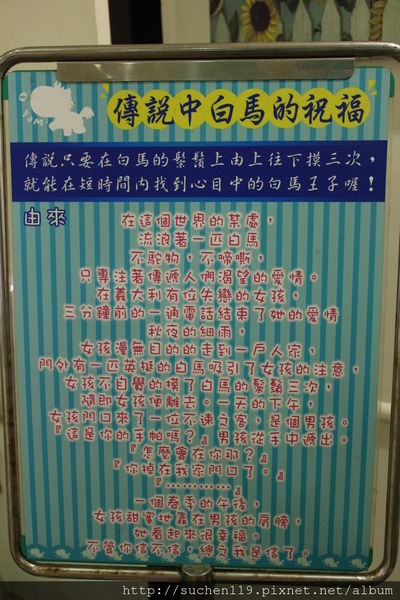 傳説中白馬的祝福
傳説只要在白馬的鬃鬚上由上往下摸三次，
就能在短時間内找到心目中的白馬王子喔！
由來
在這個世界的某處，
流浪著一匹白馬
不駝物，不啼嘶，
只專注著傳遞人們渴望的愛情。
在義大利有位失戀的女孩，
三分鐘前的一通電話結束了她的愛情
秋夜的細雨，
女孩漫無目的的走到一戶人家，
門外有一匹英挺的白馬吸引了女孩的注意，
女孩不自覺的摸了白馬的鬃鬚三次，
隨即女孩便離去。一天的下午，
女孩門口來了一位不速之客，是個男孩。
『這是你的手帕嗎？』男孩從手中遞出。
『怎麼會在你那？』
『你掉在我家門口了。』
『…………』
一個春季的午後，
女孩甜蜜地靠在男孩的肩膀，
她看起來很幸福。
不管你信不信，總之我是信了。
http://suchen119.pixnet.net/album